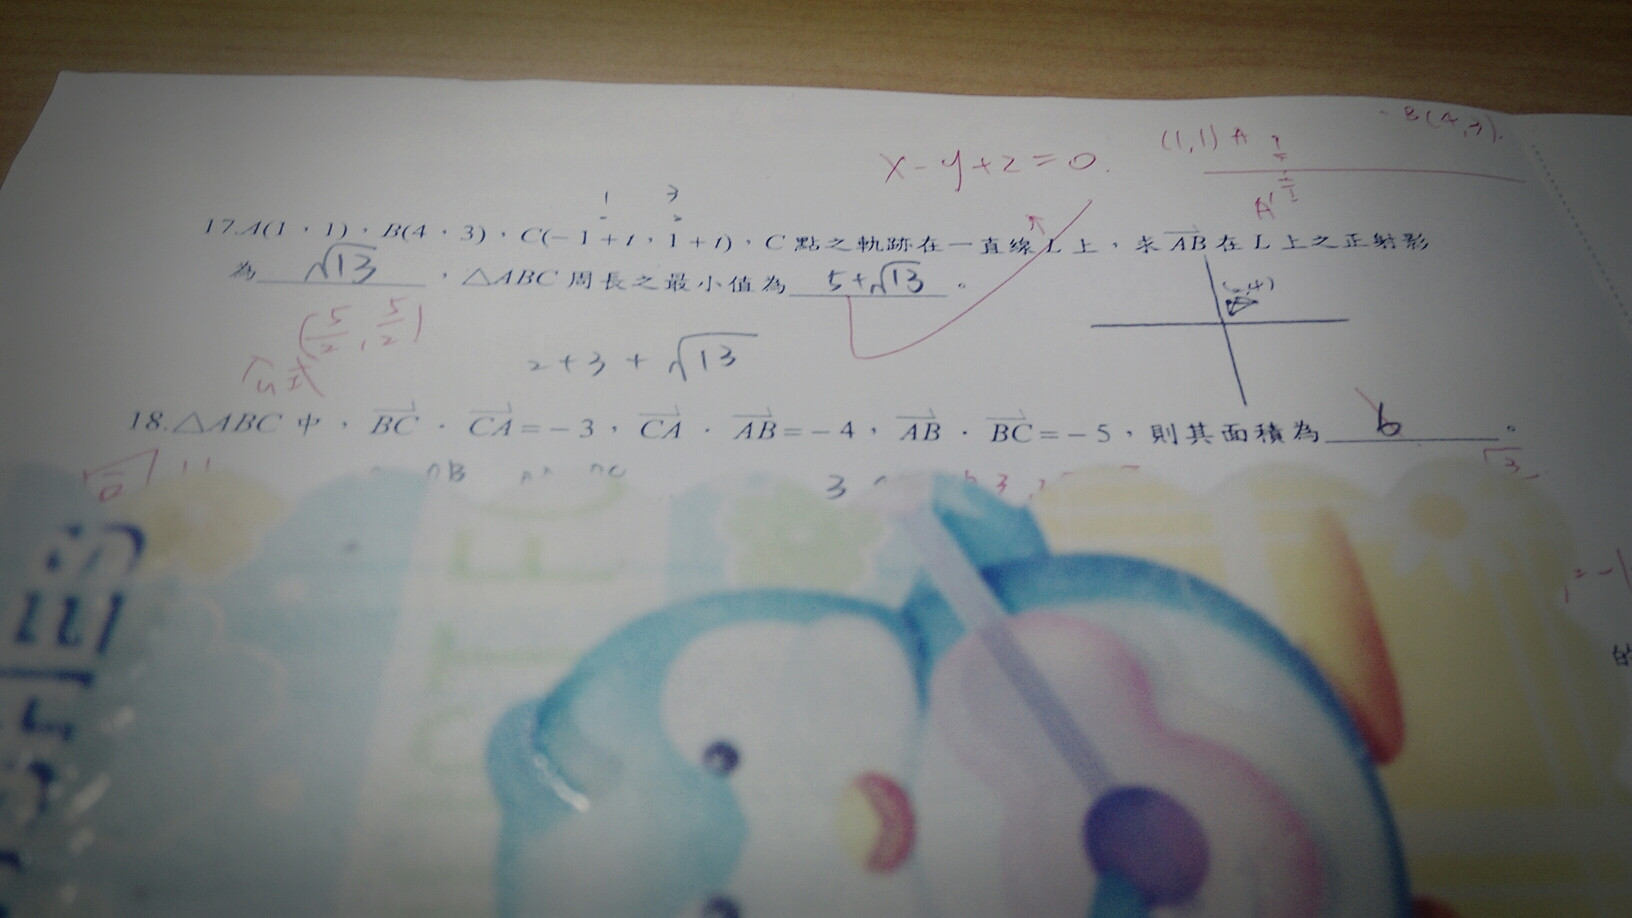 B(4,3).
(1,1) A
x-y+2=0.
A'
1 3
17.A(1,1),B(4,3),C(-1+t,1+t),C 點之軌跡在一直線 L 上,求 AB 在 L 上之正射影
為 √13 ,△ABC 周長之最小值為 5+√13 。
(5/2, 5/2)
2+3+√13
18.△ABC 中,BC · CA=-3,CA · AB=-4,AB · BC=-5,則其面積為 6 。
3
的